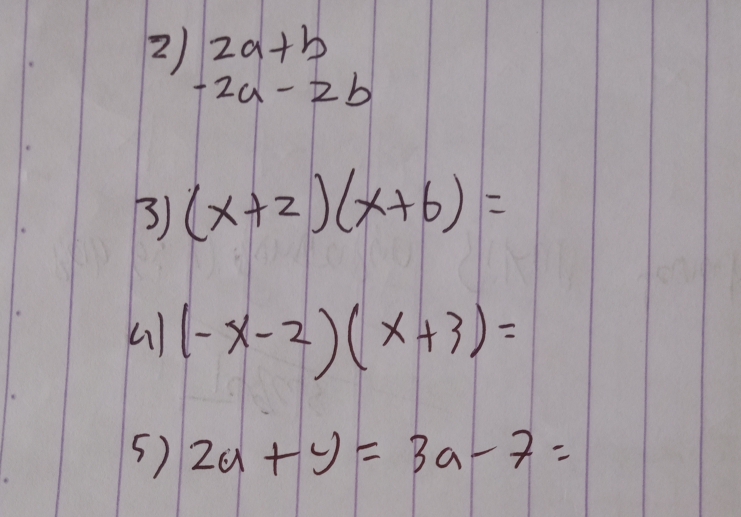 2) 2a+b
-2a-2b
3) (x+2)(x+6) =
4) (-x-2)(x+3) =
5) 2a + y = 3a - 7 =